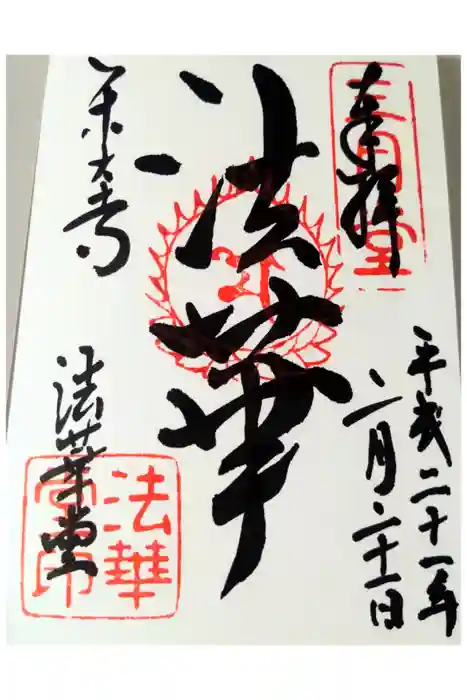 奉拝
三月堂
平成二十一年
二月二十一日
法華
東大寺
法華堂
法華
堂印